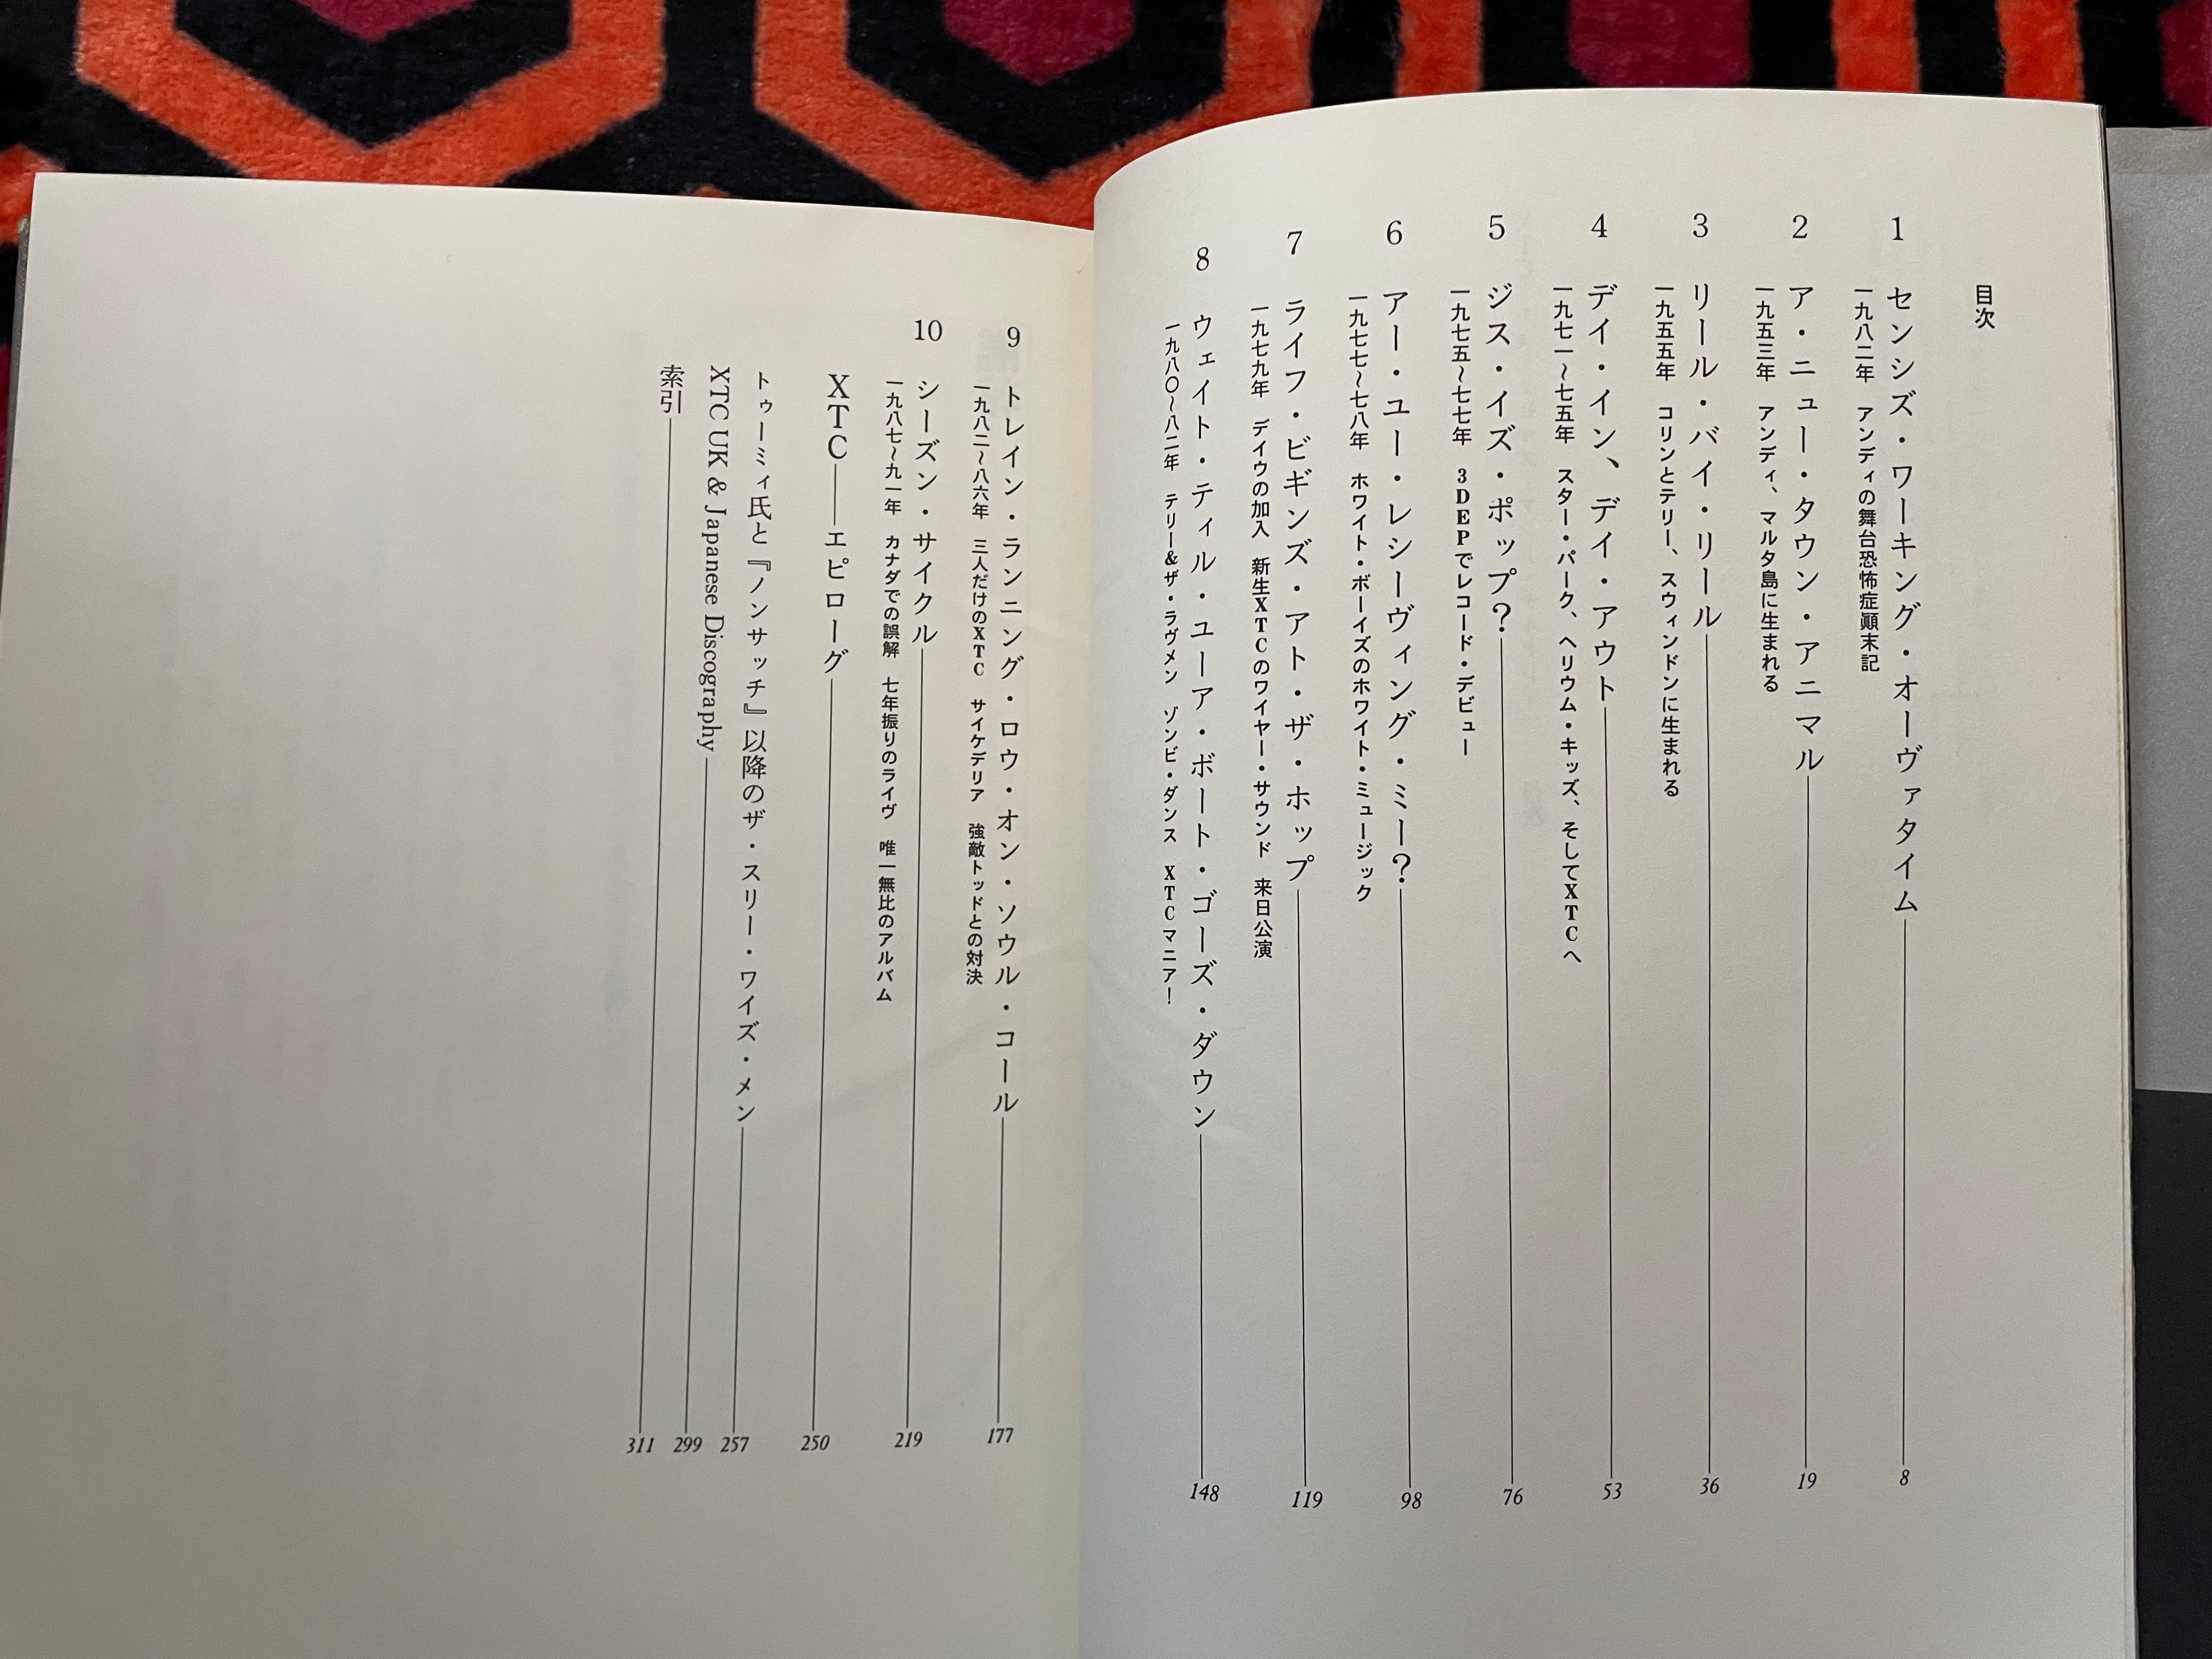 目次
1 センシズ・ワーキング・オーヴァタイム 8
一九八二年 アンディの舞台恐怖症顚末記
2 ア・ニュー・タウン・アニマル 19
一九五三年 アンディ、マルタ島に生まれる
3 リール・バイ・リール 36
一九五五年 コリンとテリー、スウィンドンに生まれる
4 デイ・イン、デイ・アウト 53
一九七一〜七五年 スター・パーク、ヘリウム・キッズ、そしてXTCへ
5 ジス・イズ・ポップ? 76
一九七五〜七七年 3DEPでレコード・デビュー
6 アー・ユー・レシーヴィング・ミー? 98
一九七七〜七八年 ホワイト・ボーイズのホワイト・ミュージック
7 ライフ・ビギンズ・アト・ザ・ホップ 119
一九七九年 デイヴの加入 新生XTCのワイヤー・サウンド 来日公演
8 ウェイト・ティル・ユーア・ボート・ゴーズ・ダウン 148
一九八〇〜八二年 テリー&ザ・ラヴメン ゾンビ・ダンス XTCマニア!
9 トレイン・ランニング・ロウ・オン・ソウル・コール 177
一九八二〜八六年 三人だけのXTC サイケデリア 強敵トッドとの対決
10 シーズン・サイクル 219
一九八七〜九一年 カナダでの誤解 七年振りのライヴ 唯一無比のアルバム
XTC——エピローグ 250
トゥーミィ氏と『ノンサッチ』以降のザ・スリー・ワイズ・メン 257
XTC UK & Japanese Discography 299
索引 311